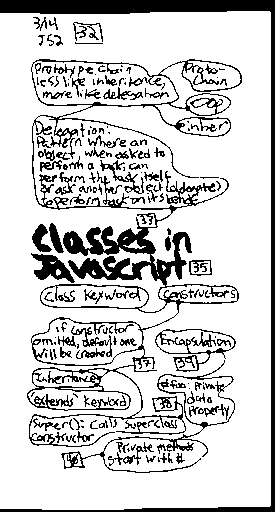 3/14
JS2
32
Prototype Chain
less like inheritance,
more like delegation
Proto-
Chain
OOP
inher
Delegation:
Pattern where an
object, when asked to
perform a task, can
perform the task itself
or ask another object (delegate)
to perform task on its behalf
33
Classes in
Javascript
35
Class Keyword
Constructors
if constructor
omitted, default one
will be created
Encapsulation
37
39
Inheritance
'extends' Keyword
#foo: Private
data
Property
38
super(): Calls superclass
constructor
Private methods
start with #